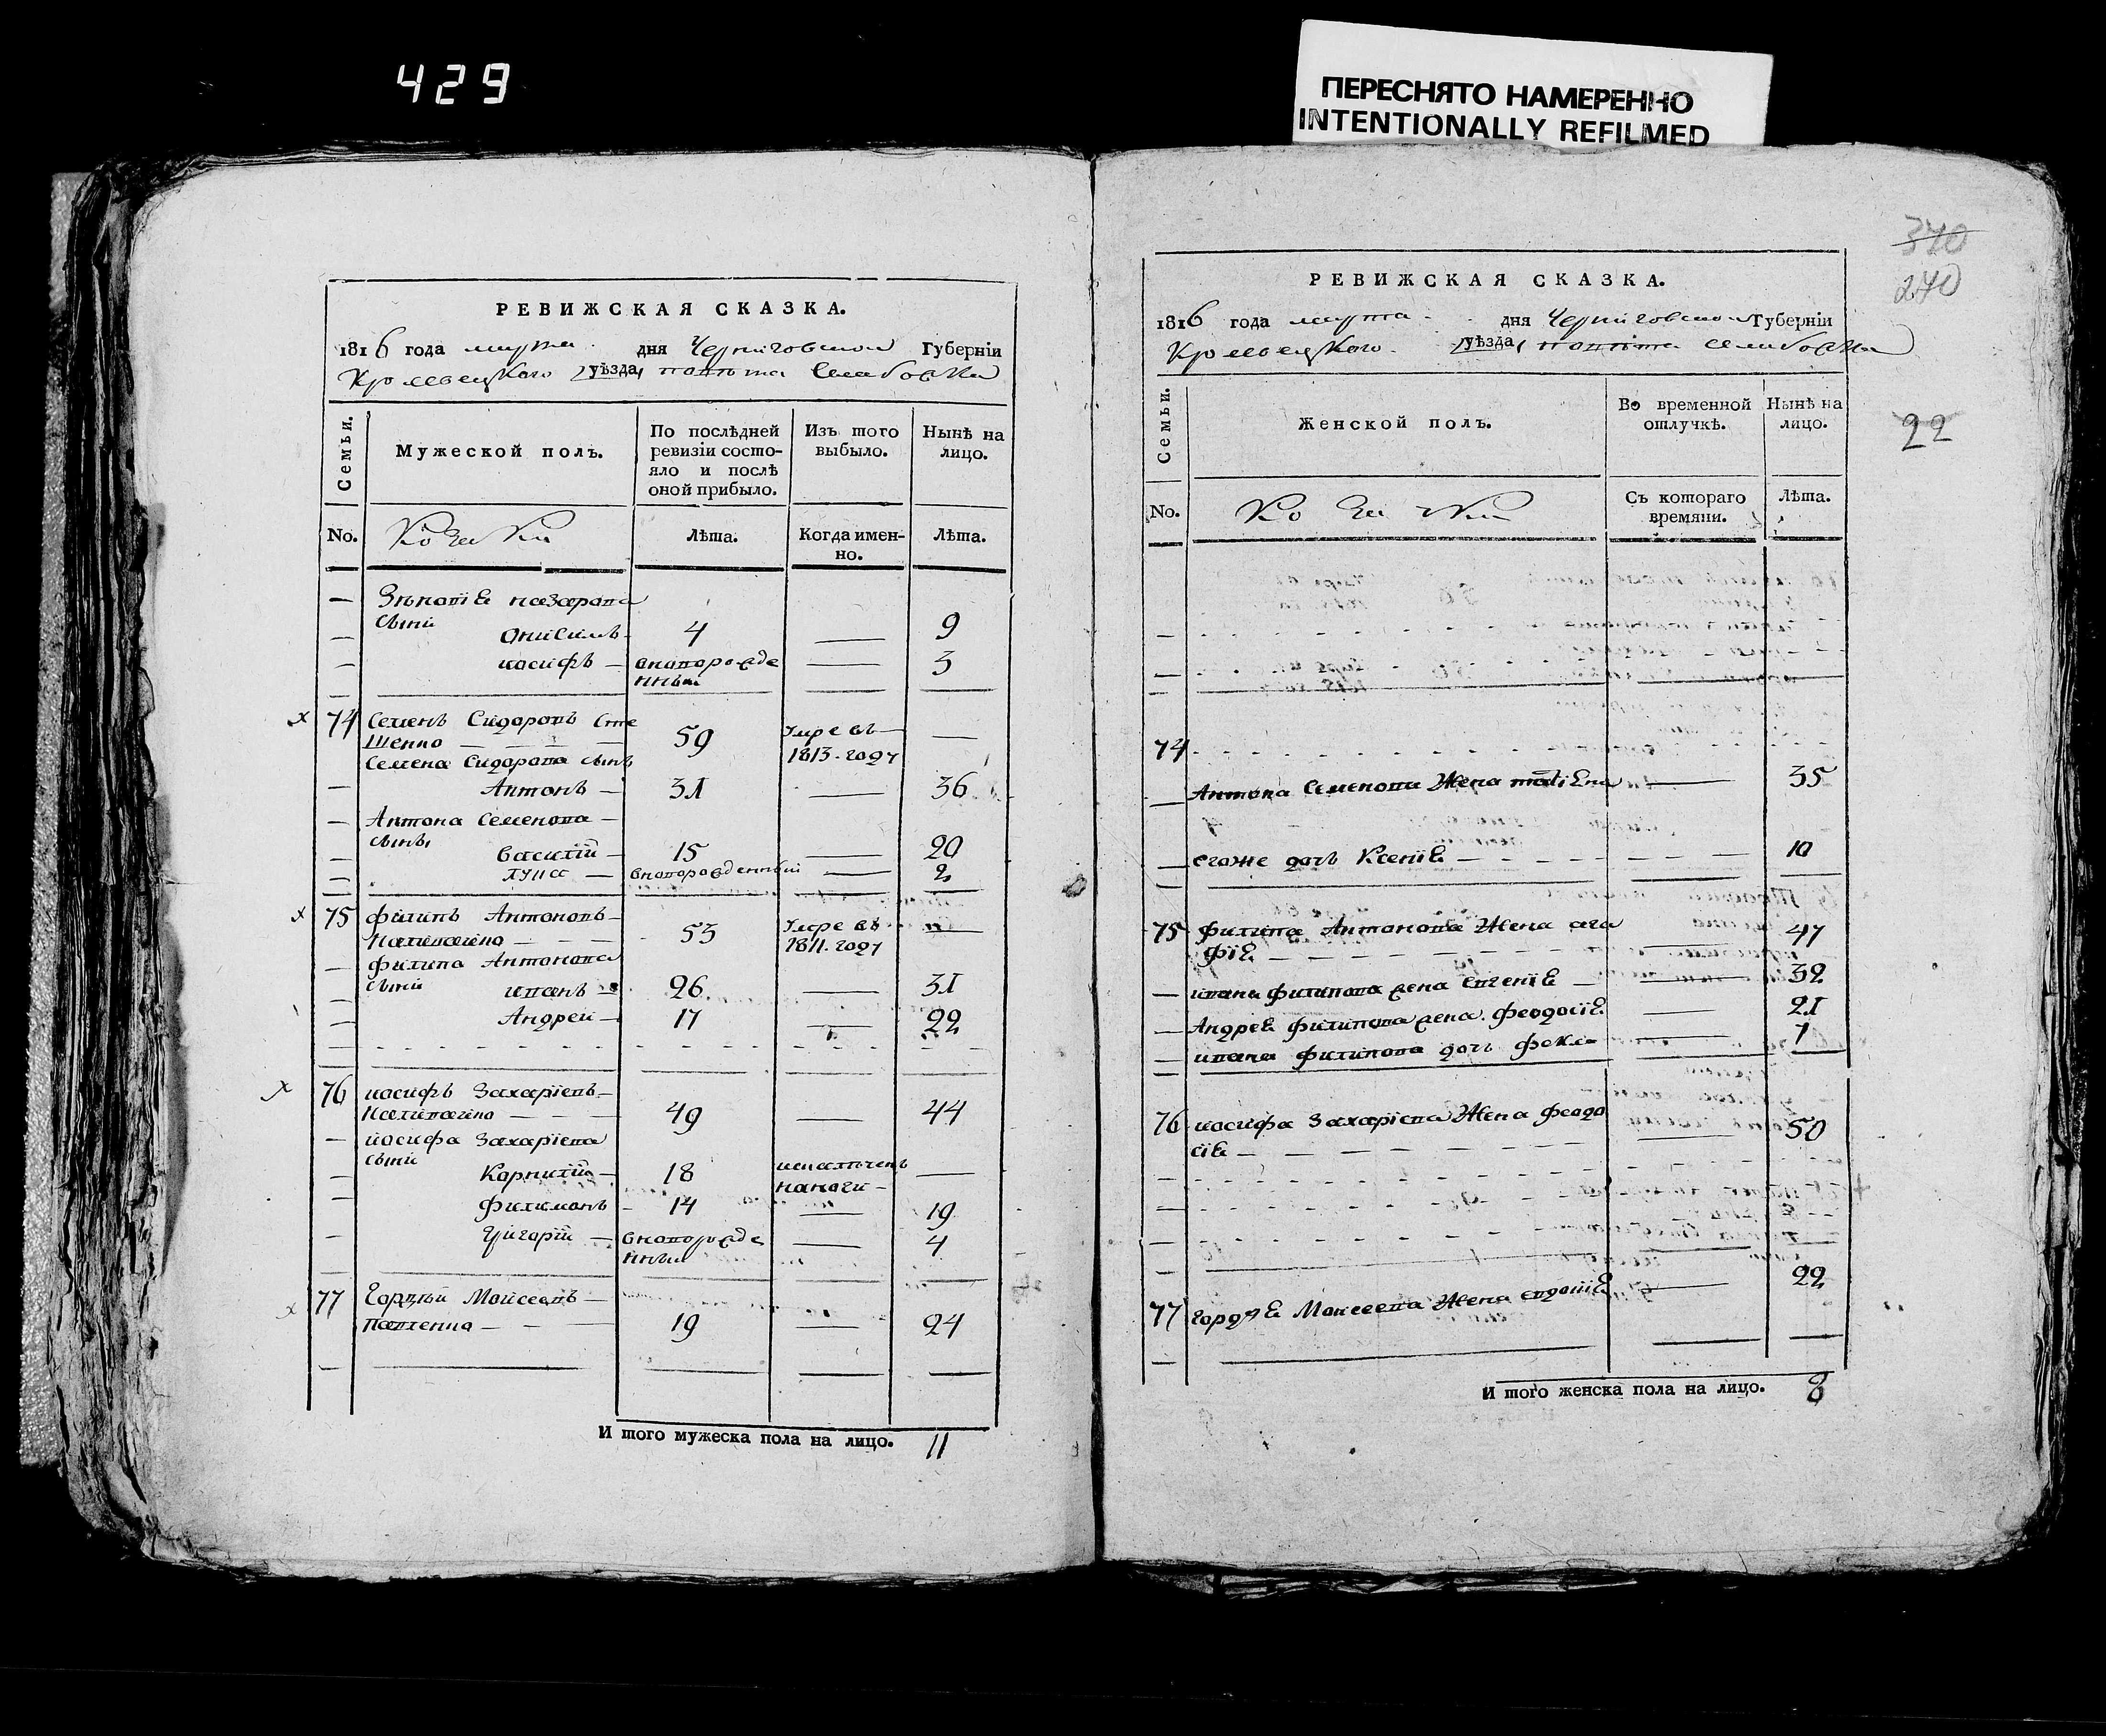 429
ПЕРЕСНЯТО НАМЕРЕННО
INTENTIONALLY REFILMED
РЕВИЖСКАЯ СКАЗКА.
1816 года марта дня Черниговской Губернiи
Кролевецкого уѣзда,
Семьи.
Мужеской полъ.
По послѣдней ревизiи состо-
яло и послѣ
оной прибыло.
Изъ того
выбыло.
Нынѣ на
лицо.
No.
Лѣта.
Когда имен-
но.
Лѣта.
сыни
Онисимъ 4 — 9
иосифъ — внопорожде — 3
нный
74 Семенъ Сидоровъ Сте
шенко — 59 Умре въ —
1813 году
Семена Сидорова сынъ
Антонъ — 31 — 36
Антона Семенова —
сынъ,
василiй — 15 — 20
внопорожденный — 2
75 Филипъ Антоновъ —
53 Умре въ —
1811 году
Филипа Антонова
сыни
иванъ — 26 — 31
Андрей — 17 — 22
76 иосифъ Захарiевъ —
49 — 44
иосифа Захарiева
сыни
Корнилiй — 18 —
Филимонъ — 14 — 19
Григорiй — внопорожде — 4
нный
77 Гордѣй Моисеевъ —
Павленко — 19 — 24
И того мужеска пола на лицо. 11
370
240
22
РЕВИЖСКАЯ СКАЗКА.
1816 года марта дня Черниговской Губернiи
Кролевецкого уѣзда,
Семьи.
Женской полъ.
Во временной
отлучкѣ.
Нынѣ на
лицо.
No.
Съ котораго
времяни.
Лѣта.
74
Антона Семенова Жена — 35
егоже дочь Ксенiя — 10
75 Филипа Антонова Жена ага
фiя — 47
ивана филипова жена евгенiя — 32
Андрея филипова жена феодосiя — 21
ивана филипова дочь фекла — 7
76 иосифа Захарiева Жена феодо
сiя — 50
77 Гордѣя Моисеева Жена евдокiя — 22
И того женска пола на лицо. 8